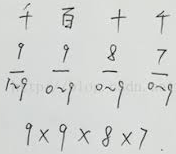 千 百 十 个
9 9 8 7
1~9 0~9 0~9 0~9
9×9×8×7.